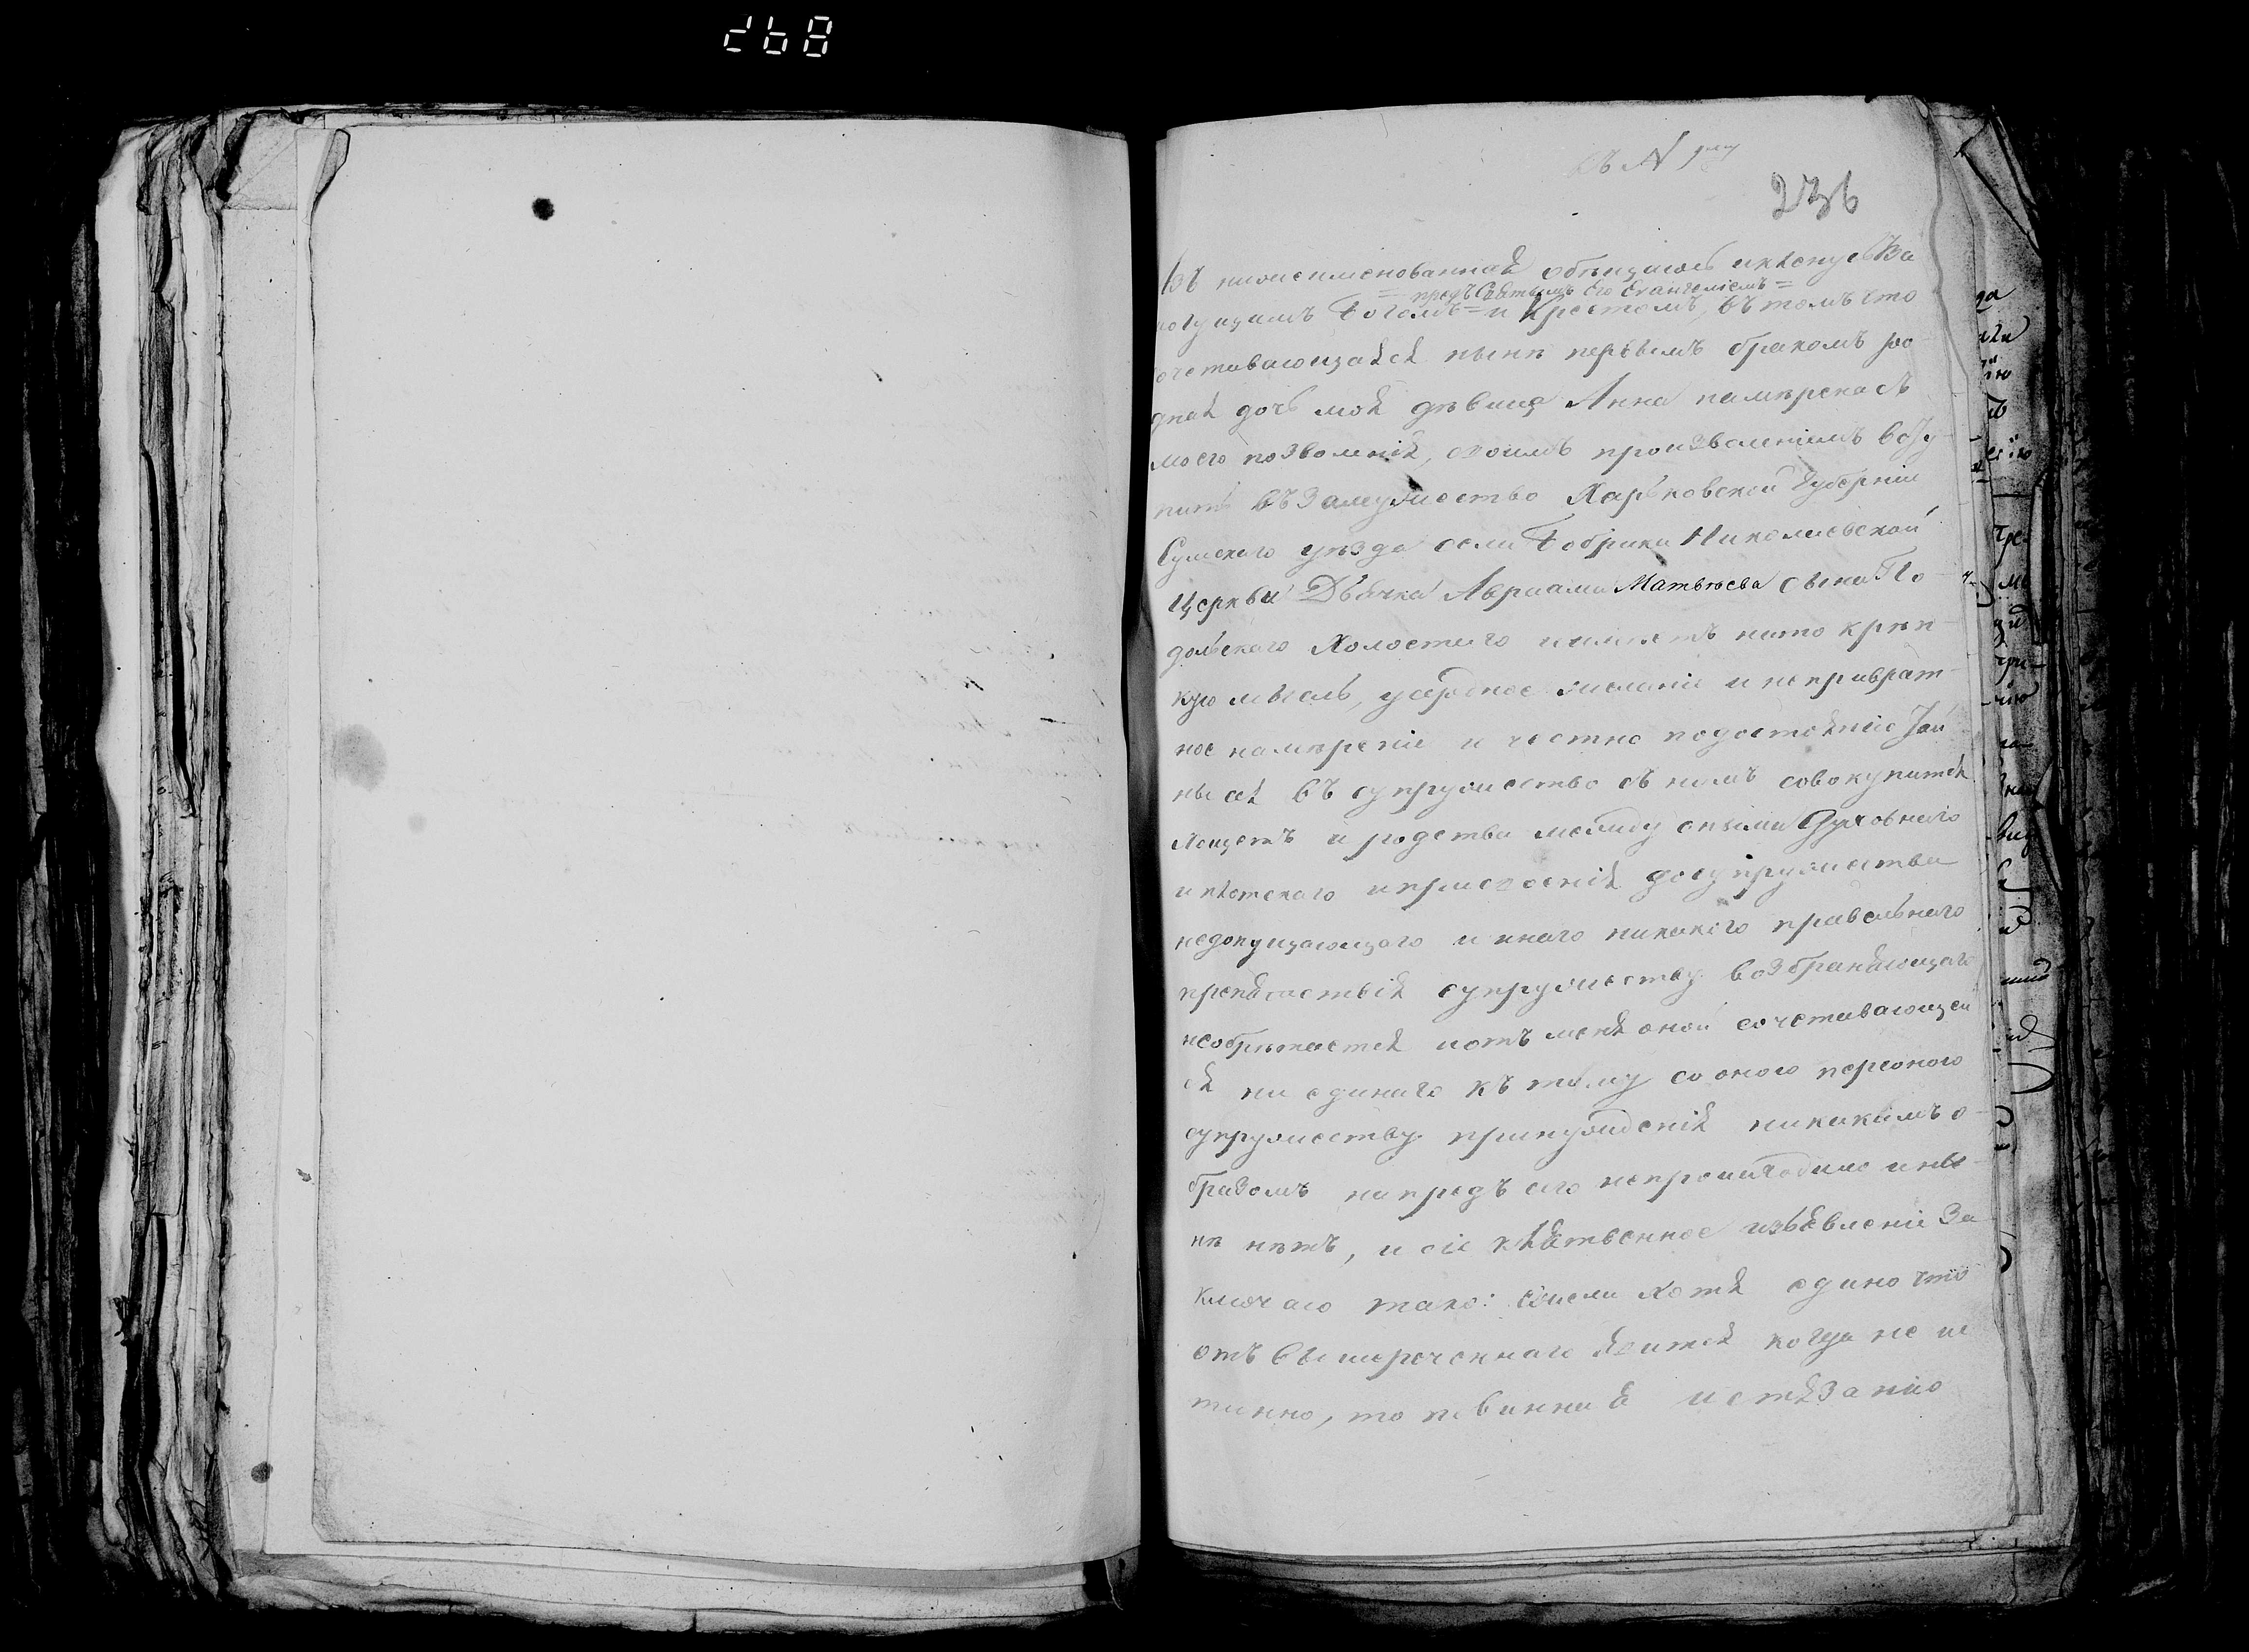 268
Къ N 1му
236
Азъ нижеименованная обѣщаюсь и клянусь Все
= предъ Святымъ Его Евангелiемъ =
могущимъ Богомъ = и Крестомъ, въ томъ что
сочетавающаяся нынѣ первымъ бракомъ ро-
дная дочь моя дѣвица Анна намѣрена съ
моего позволенiя, своимъ произволенiемъ всту-
пить въ замужество Харьковской Губернiи
Сумскаго уѣзда села Бобрика Николаевской
Церкви Дьячка Авраама Матвѣева сына По-
дольскаго Холостаго и имѣетъ на то крѣп-
кую мысль, усердное желанiе и непреврат-
ное намѣренiе и честно по достоянiю Тай-
ны ся въ супружество съ нимъ совокупится
хощетъ и родства между оными Духовнаго
и плотскаго и присвоенiя до супружества
недопущающаго и инаго никакого правельнаго
препятствiя супружеству возбраняющаго
необрѣтается и отъ меня оной сочетавающей
ся ни единаго къ тому со оного персоного
супружеству принужденiя никакимъ о-
бразомъ напредъ сего непроисходило и ны-
нѣ нѣтъ, и сiе клятвенное изъявленiе за-
ключаю тако: ежели хотя едино что
отъ вышереченнаго явится когда не ис
тинно, то повинна я истязанiю